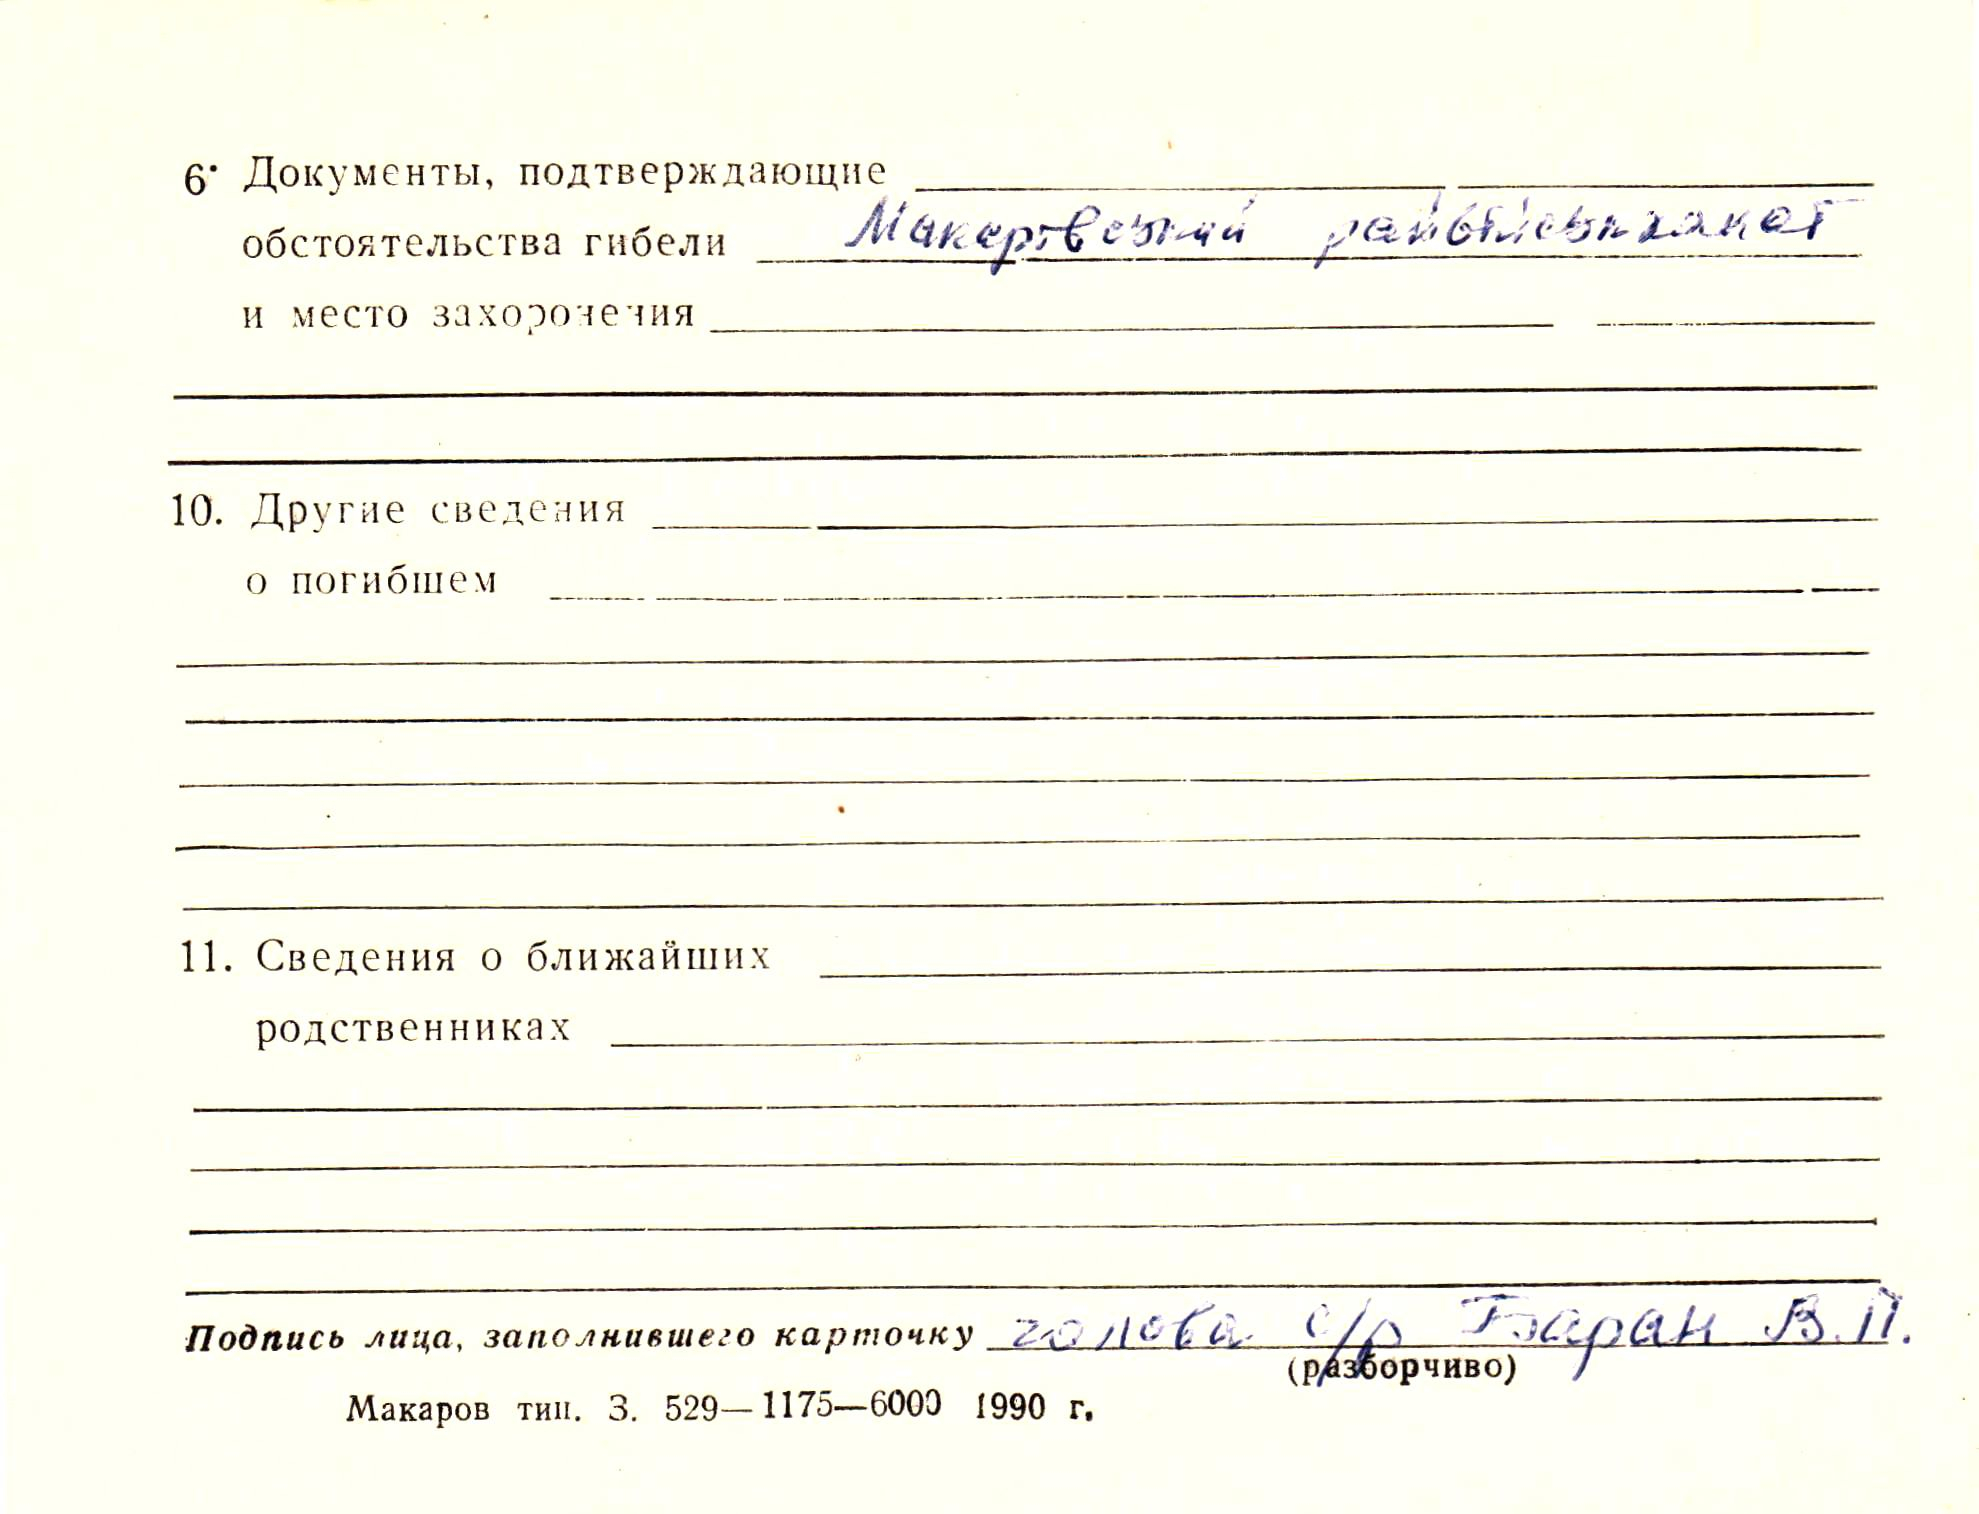 6. Документы, подтверждающие
обстоятельства гибели Макарівський райвійськкомат
и место захоронения
10. Другие сведения
о погибшем
11. Сведения о ближайших
родственниках
Подпись лица, заполнившего карточку голова с/р Баран В.П.
(разборчиво)
Макаров тип. З. 529—1175—6000 1990 г.